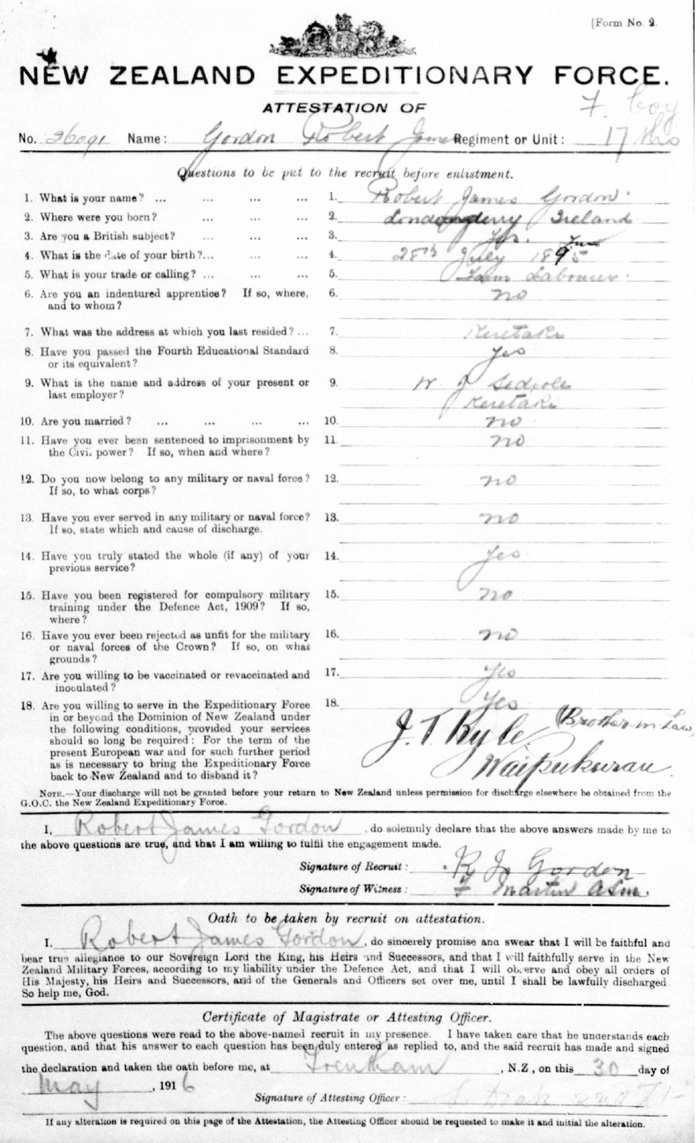 [Form No. 2.
NEW ZEALAND EXPEDITIONARY FORCE.
ATTESTATION OF
F. Coy
No. 26091 Name: Gordon Robert James Regiment or Unit: 17ths
Questions to be put to the recruit before enlistment.
1. What is your name? ... ... ... ... 1. Robert James Gordon.
2. Where were you born? ... ... ... 2. Londonderry Ireland
3. Are you a British subject? ... ... ... 3. Yes.
4. What is the date of your birth?... ... ... 4. 28th July 1895
5. What is your trade or calling? ... ... ... 5. Farm Labourer.
6. Are you an indentured apprentice? If so, where, 6. no
and to whom?
7. What was the address at which you last resided? ... 7. Keretaki
8. Have you passed the Fourth Educational Standard 8. Yes
or its equivalent?
9. What is the name and address of your present or 9. W J
last employer? Keretaki
10. Are you married? ... ... ... ... 10. no
11. Have you ever been sentenced to imprisonment by 11. no
the Civil power? If so, when and where?
12. Do you now belong to any military or naval force? 12. no
If so, to what corps?
13. Have you ever served in any military or naval force? 13. no
If so, state which and cause of discharge.
14. Have you truly stated the whole (if any) of your 14. Yes
previous service?
15. Have you been registered for compulsory military 15. no
training under the Defence Act, 1909? If so,
where?
16. Have you ever been rejected as unfit for the military 16. no
or naval forces of the Crown? If so, on what
grounds?
17. Are you willing to be vaccinated or revaccinated and 17. Yes
inoculated?
18. Are you willing to serve in the Expeditionary Force 18. Yes
in or beyond the Dominion of New Zealand under
the following conditions, provided your services
should so long be required: For the term of the
present European war and for such further period
as is necessary to bring the Expeditionary Force
back to New Zealand and to disband it?
J. T. Kyle (Brother in Law)
Waipukurau.
NOTE.—Your discharge will not be granted before your return to New Zealand unless permission for discharge elsewhere be obtained from the
G.O.C. the New Zealand Expeditionary Force.
I, Robert James Gordon, do solemnly declare that the above answers made by me to
the above questions are true, and that I am willing to fulfil the engagement made.
Signature of Recruit: R J Gordon
Signature of Witness: F Martin ASM.
Oath to be taken by recruit on attestation.
I, Robert James Gordon, do sincerely promise and swear that I will be faithful and
bear true allegiance to our Sovereign Lord the King, his Heirs and Successors, and that I will faithfully serve in the New
Zealand Military Forces, according to my liability under the Defence Act, and that I will observe and obey all orders of
His Majesty, his Heirs and Successors, and of the Generals and Officers set over me, until I shall be lawfully discharged.
So help me, God.
Certificate of Magistrate or Attesting Officer.
The above questions were read to the above-named recruit in my presence. I have taken care that he understands each
question, and that his answer to each question has been duly entered as replied to, and the said recruit has made and signed
the declaration and taken the oath before me, at Trentham, N.Z., on this 30 day of
May, 1916
Signature of Attesting Officer: 2nd Lt
If any alteration is required on this page of the Attestation, the Attesting Officer should be requested to make it and initial the alteration.